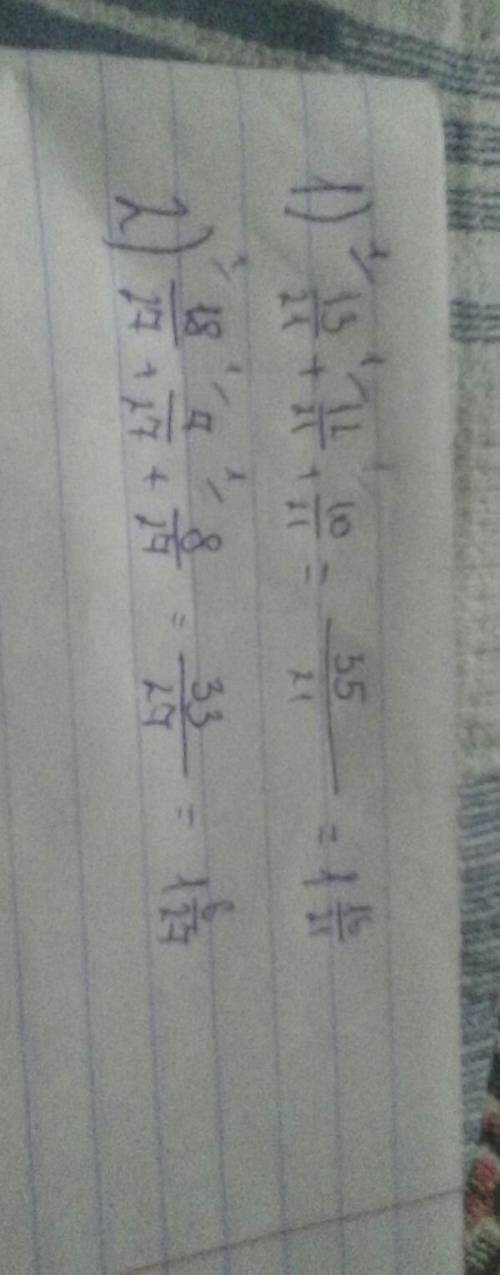 1) 13/21 + 12/21 + 10/21 = 35/21 = 1
2) 18/27 + 7/27 + 8/27 = 33/27 = 1 6/27